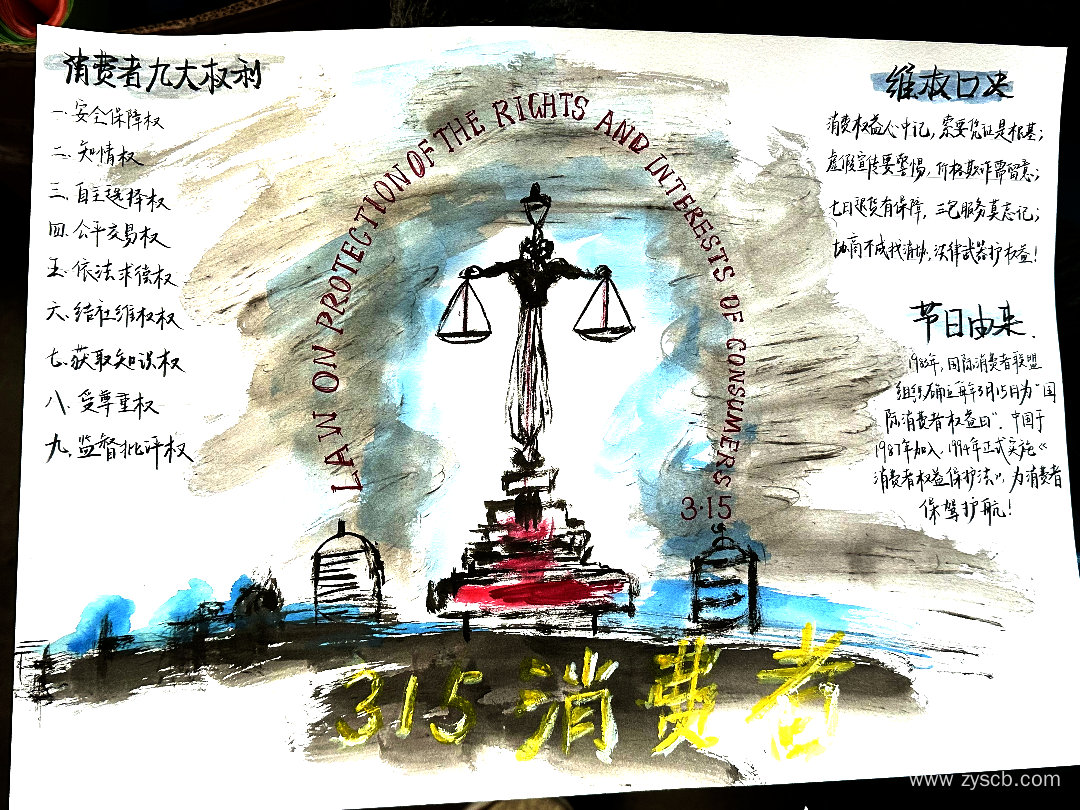 消费者九大权利
一.安全保障权
二.知情权
三.自主选择权
四.公平交易权
五.依法求偿权
六.结社维权权
七.获取知识权
八.受尊重权
九.监督批评权
LAW ON PROTECTION OF THE RIGHTS AND INTERESTS OF CONSUMERS
3·15
维权口决
消费权益心中记,索要凭证是根基;
虚假宣传要警惕,价格欺诈需留意;
七日退货有保障,三包服务莫忘记;
协商不成找消协,法律武器护权益!
节日由来.
1983年,国际消费者联盟
组织确立每年3月15日为“国
际消费者权益日”.中国于
1987年加入,1994年正式实施《
消费者权益保护法》,为消费者
保驾护航!
315消费者
www.zyscb.com